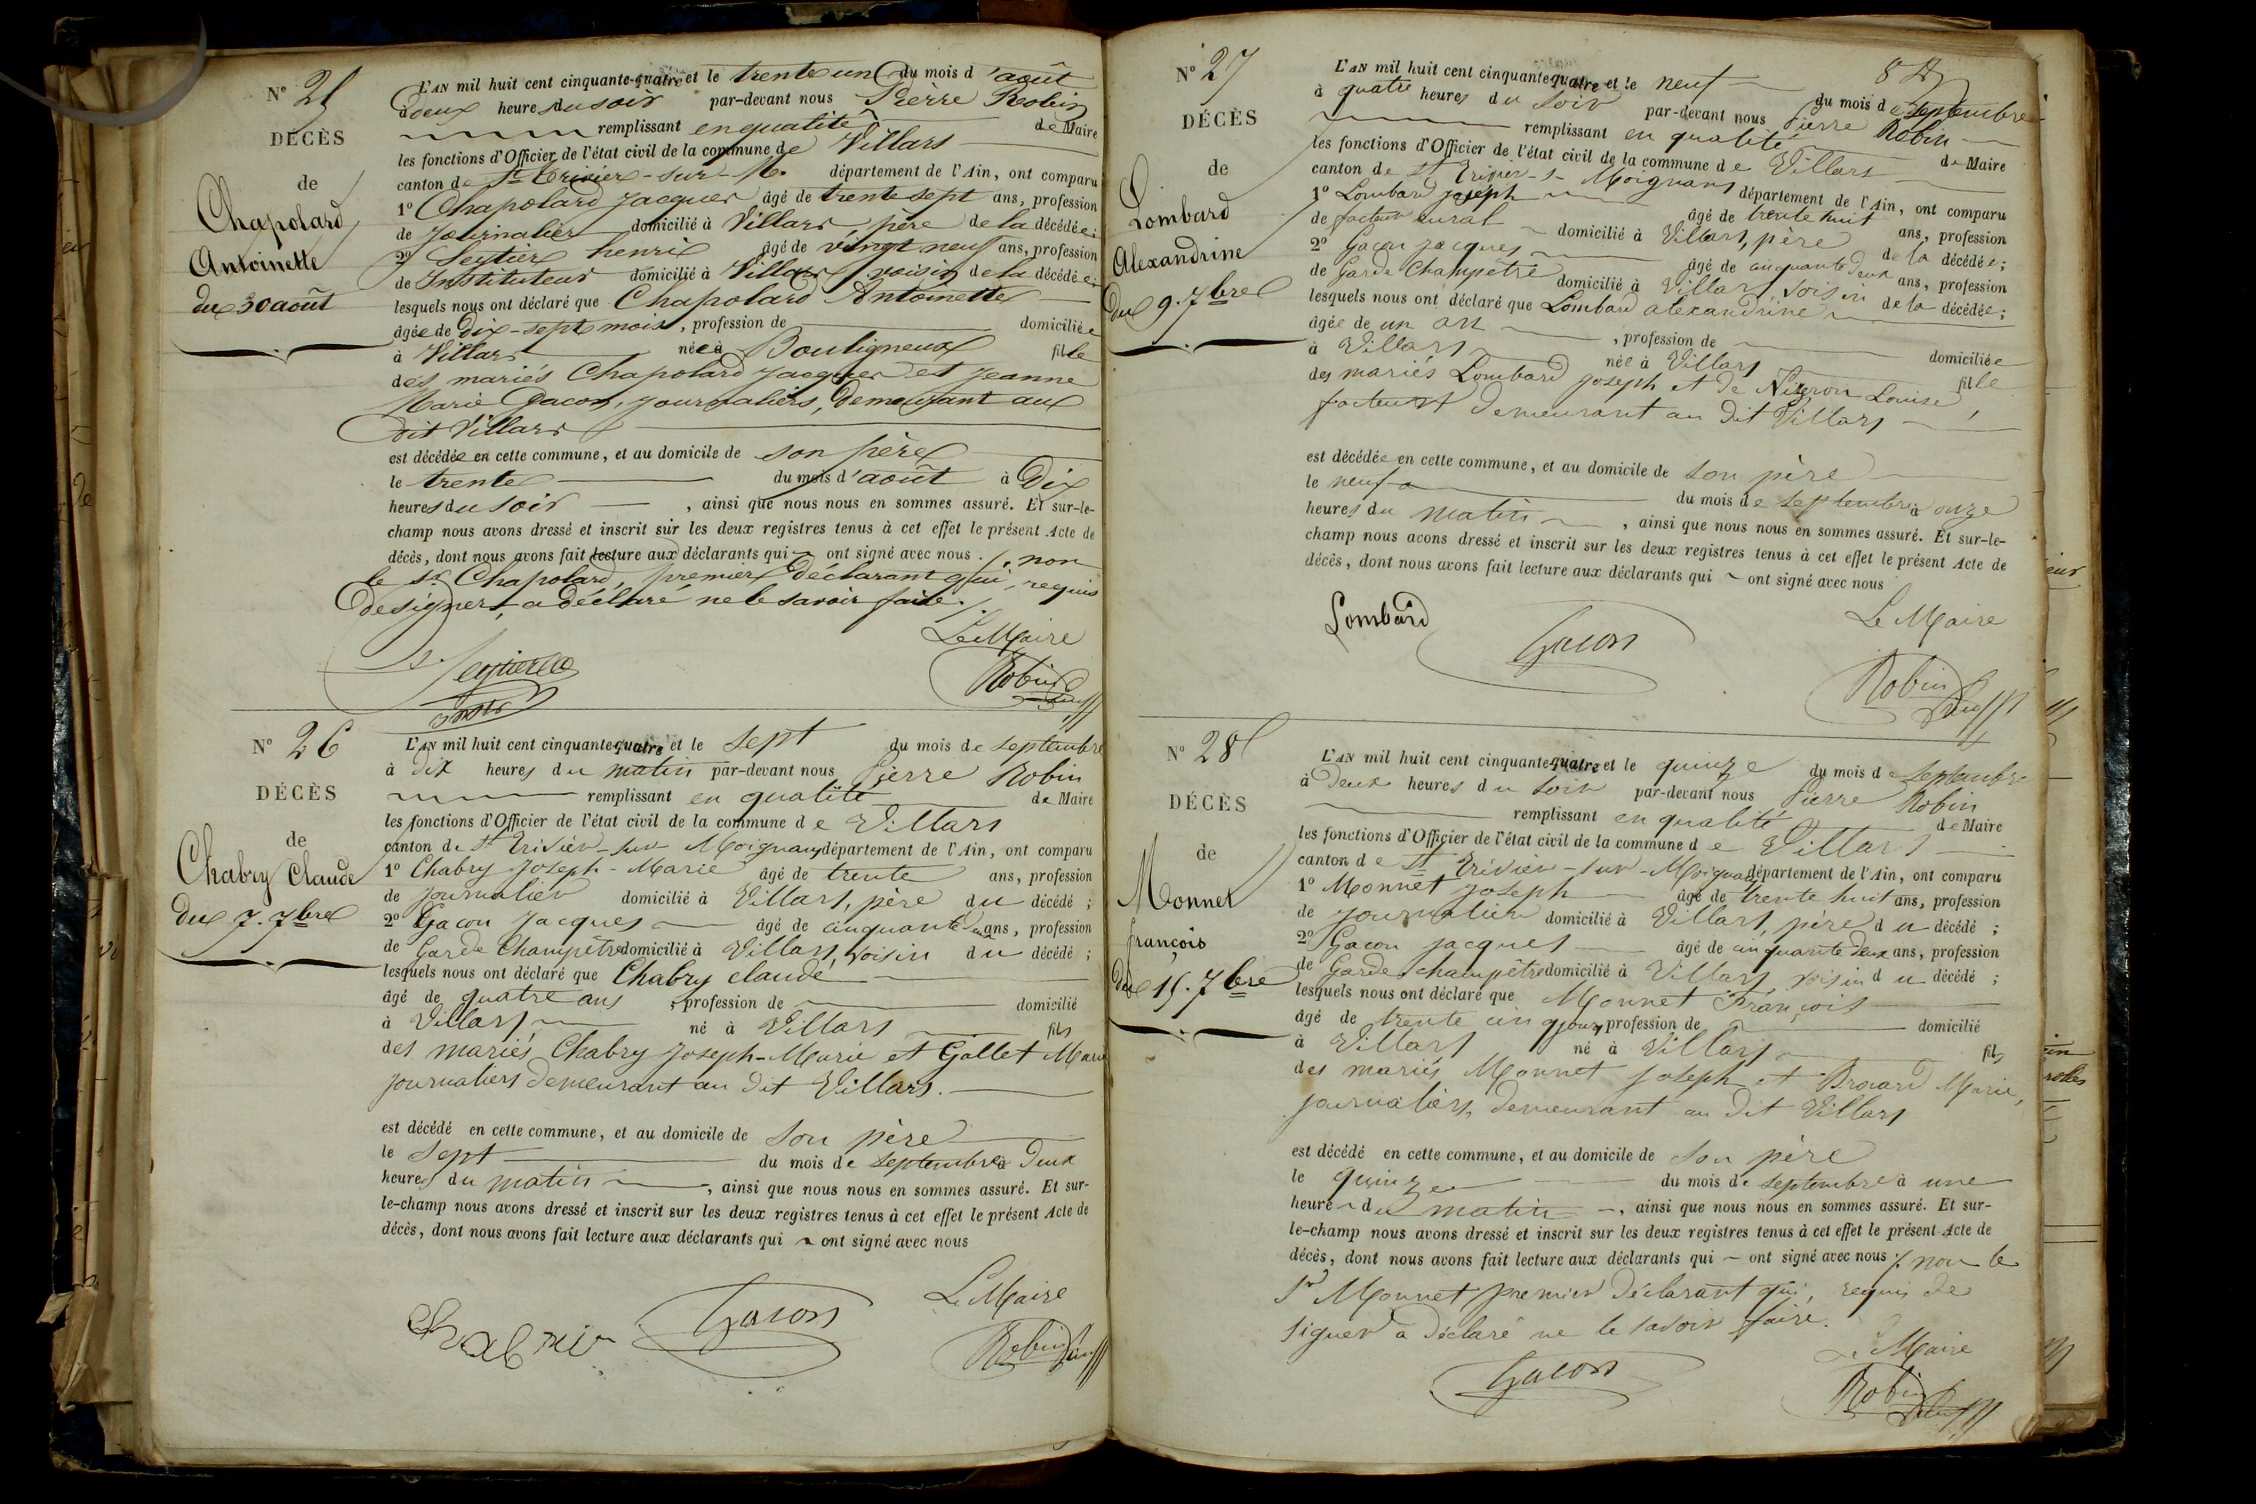 N° 25
DÉCÈS
de
Chapolard
Antoinette
du 30 août
L'AN mil huit cent cinquante-quatre et le trente un du mois d'août
à deux heures du soir par-devant nous Pierre Robin
remplissant en qualité de Maire
les fonctions d'Officier de l'état civil de la commune de Villars
canton de St Trivier-sur-M. département de l'Ain, ont comparu
1° Chapolard Jacques âgé de trente sept ans, profession
de journalier domicilié à Villars, père de la décédée;
2° Seytier henri âgé de vingt neuf ans, profession
de Instituteur domicilié à Villars voisin de la décédée;
lesquels nous ont déclaré que Chapolard Antoinette
âgée de Dix-sept mois, profession de domiciliée
à Villars née à Bouligneux fille
des mariés Chapolard Jacques et Jeanne
Marie Gacon, journaliers, demeurant au
dit Villars
est décédée en cette commune, et au domicile de son père
le trente du mois d'août à Dix
heures du soir, ainsi que nous nous en sommes assuré. Et sur-le-
champ nous avons dressé et inscrit sur les deux registres tenus à cet effet le présent Acte de
décès, dont nous avons fait lecture aux déclarants qui ont signé avec nous ./. non
le sr Chapolard, premier déclarant qui, requis
de signer, a déclaré ne le savoir faire ./.
Le Maire
Robin
N° 26
DÉCÈS
de
Chabry Claude
du 7. 7bre
L'AN mil huit cent cinquante-quatre et le sept du mois de septembre
à dix heures du matin par-devant nous Pierre Robin
remplissant en qualité de Maire
les fonctions d'Officier de l'état civil de la commune de Villars
canton de St Trivier-sur Moignans département de l'Ain, ont comparu
1° Chabry Joseph-Marie âgé de trente ans, profession
de journalier domicilié à Villars, père du décédé ;
2° Gacon Jacques âgé de cinquante deux ans, profession
de Garde Champêtre domicilié à Villars, voisin du décédé ;
lesquels nous ont déclaré que Chabry claude
âgé de quatre ans, profession de domicilié
à Villars né à Villars fils
des mariés Chabry Joseph-Marie et Gallet Marie
journaliers demeurant au dit Villars.
est décédé en cette commune, et au domicile de son père
le sept du mois de septembre à deux
heures du matin, ainsi que nous nous en sommes assuré. Et sur-
le-champ nous avons dressé et inscrit sur les deux registres tenus à cet effet le présent Acte de
décès, dont nous avons fait lecture aux déclarants qui ont signé avec nous
Le Maire
Gacon
Robin
N° 27
DÉCÈS
de
Lombard
Alexandrine
du 9. 7bre
L'AN mil huit cent cinquante-quatre et le neuf du mois de septembre
à quatre heures du soir par-devant nous Pierre Robin
remplissant en qualité de Maire
les fonctions d'Officier de l'état civil de la commune de Villars
canton de St Trivier-s-Moignans département de l'Ain, ont comparu
1° Lombard joseph âgé de trente huit ans, profession
de facteur rural domicilié à Villars, père de la décédée;
2° Gacon jacques âgé de cinquante deux ans, profession
de Garde Champêtre domicilié à Villars, voisin de la décédée;
lesquels nous ont déclaré que Lombard alexandrine
âgée de un an, profession de domiciliée
à Villars née à Villars fille
des mariés Lombard joseph et de Louise
demeurant au dit Villars
est décédée en cette commune, et au domicile de son père
le neuf du mois de septembre à onze
heures du matin, ainsi que nous nous en sommes assuré. Et sur-le-
champ nous avons dressé et inscrit sur les deux registres tenus à cet effet le présent Acte de
décès, dont nous avons fait lecture aux déclarants qui ont signé avec nous
Le Maire
Lombard
Gacon
Robin
N° 28
DÉCÈS
de
Monnet
françois
du 15. 7bre
L'AN mil huit cent cinquante-quatre et le quinze du mois de septembre
à deux heures du soir par-devant nous Pierre Robin
remplissant en qualité de Maire
les fonctions d'Officier de l'état civil de la commune de Villars
canton de St Trivier-sur-Moignans département de l'Ain, ont comparu
1° Monnet Joseph âgé de trente huit ans, profession
de journalier domicilié à Villars, père du décédé ;
2° Gacon jacques âgé de cinquante deux ans, profession
de Garde champêtre domicilié à Villars, voisin du décédé ;
lesquels nous ont déclaré que Monnet François
âgé de trente cinq jours, profession de domicilié
à Villars né à Villars fils
des mariés Monnet Joseph et Brouard Marie,
journaliers, demeurant au dit Villars
est décédé en cette commune, et au domicile de son père
le quinze du mois de septembre à une
heure du matin, ainsi que nous nous en sommes assuré. Et sur-
le-champ nous avons dressé et inscrit sur les deux registres tenus à cet effet le présent Acte de
décès, dont nous avons fait lecture aux déclarants qui ont signé avec nous ./. non le
Sr Monnet premier déclarant qui, requis de
signer a déclaré ne le savoir faire.
Le Maire
Gacon
Robin